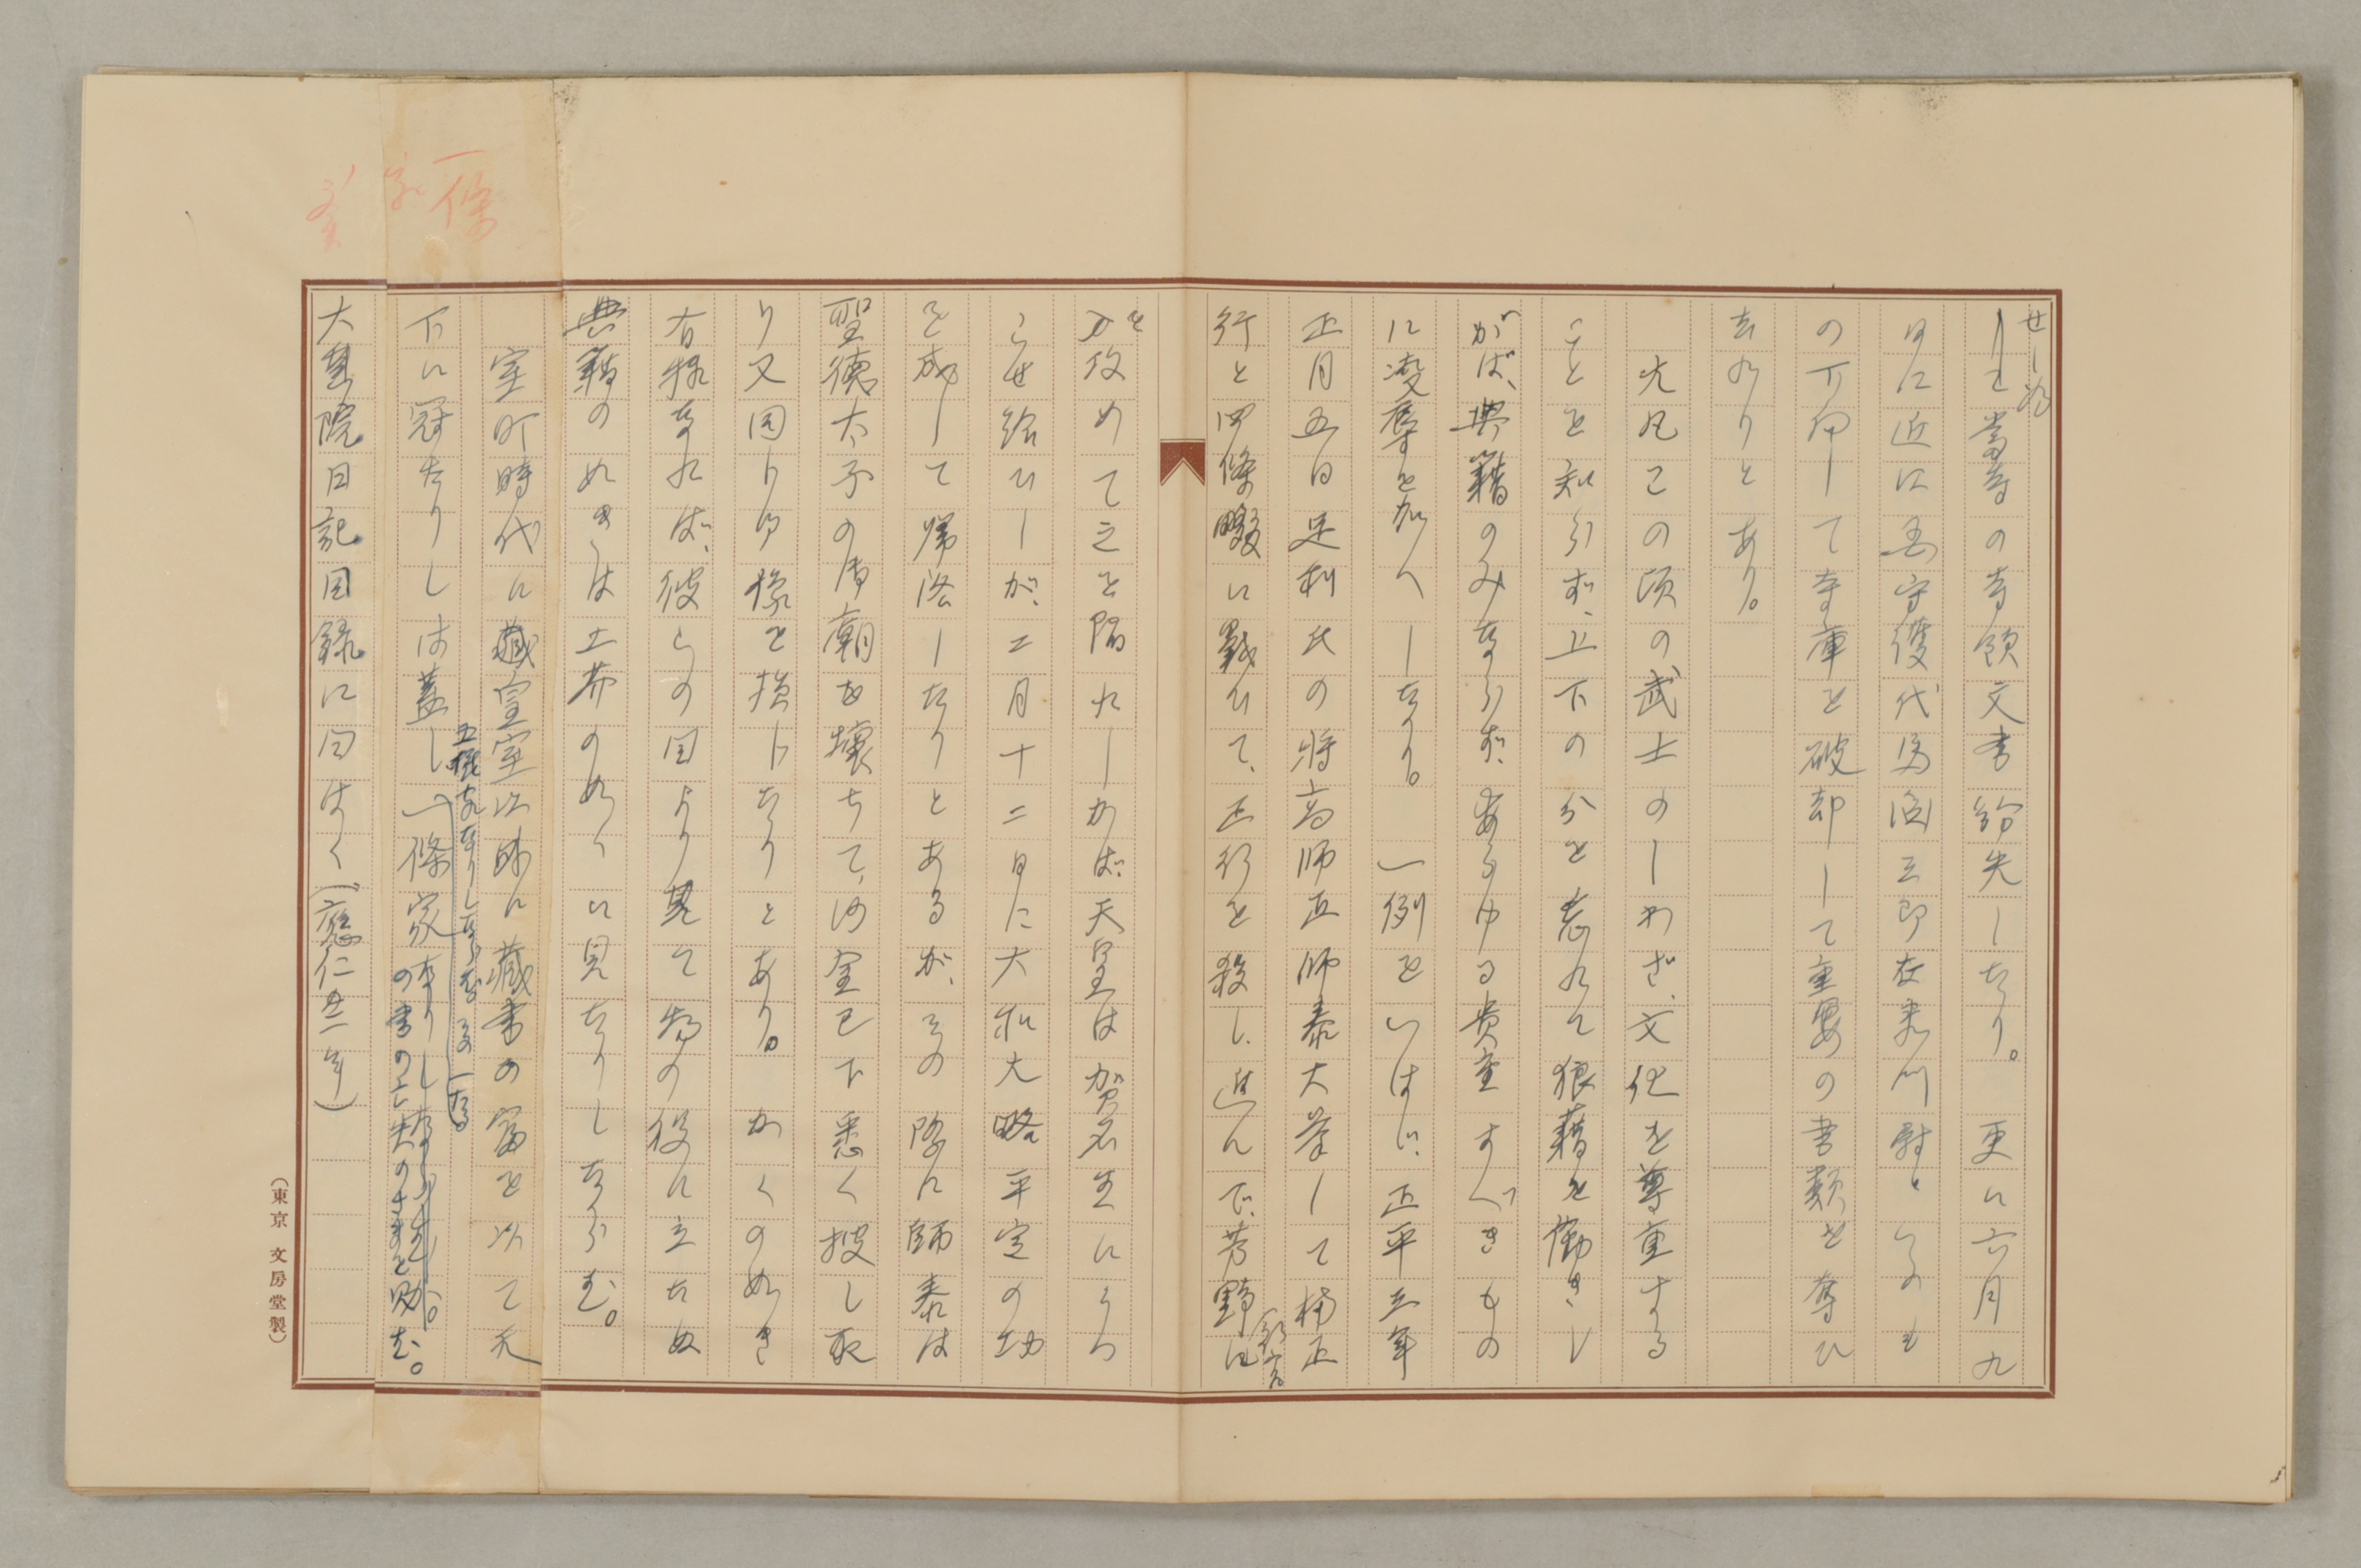 せし為
しと當寺の寺領文書紛失したり。　更に六月九
日に近江守護代
の下知して寺庫を破却して重要の書類を奪ひ
去れりとあり。
大凡この頃の武士のしわざ、文化を尊重する
ことを知らず、上下の分を忘れて狼藉を働きし
かば、典籍のみならず、あらゆる貴重すべきもの
に凌辱を加へしなり。　一例をいはば、正平三年
正月五日足利氏の将高師直師泰大挙して楠正
行と四條畷に戰ひて、正行を殺し、進んで、芳野
行宮
を
攻めて之を陷れしかば、天皇は賀名生にうつ
らせ給ひしが、二月十二日に大和大略平定の功
を成して帰洛したりとあるが、その際に師泰は
聖徳太子の廟を壊ちて、河金已下悉く捜し取
り又因り御像を損じたりとあり。　かくのめき
有様なれば、彼らの目より見て物の役に立たぬ
典籍のめきは土芥のめくに見なりしならむ。
室町時代に蔵書の富を以て天
下に冠たりしは蓋し一條家なりしならむ。
の書の亡失のさまを勘む。
大乗院日記目録に曰はく（應仁元年）
一條
（東京 文房堂製）